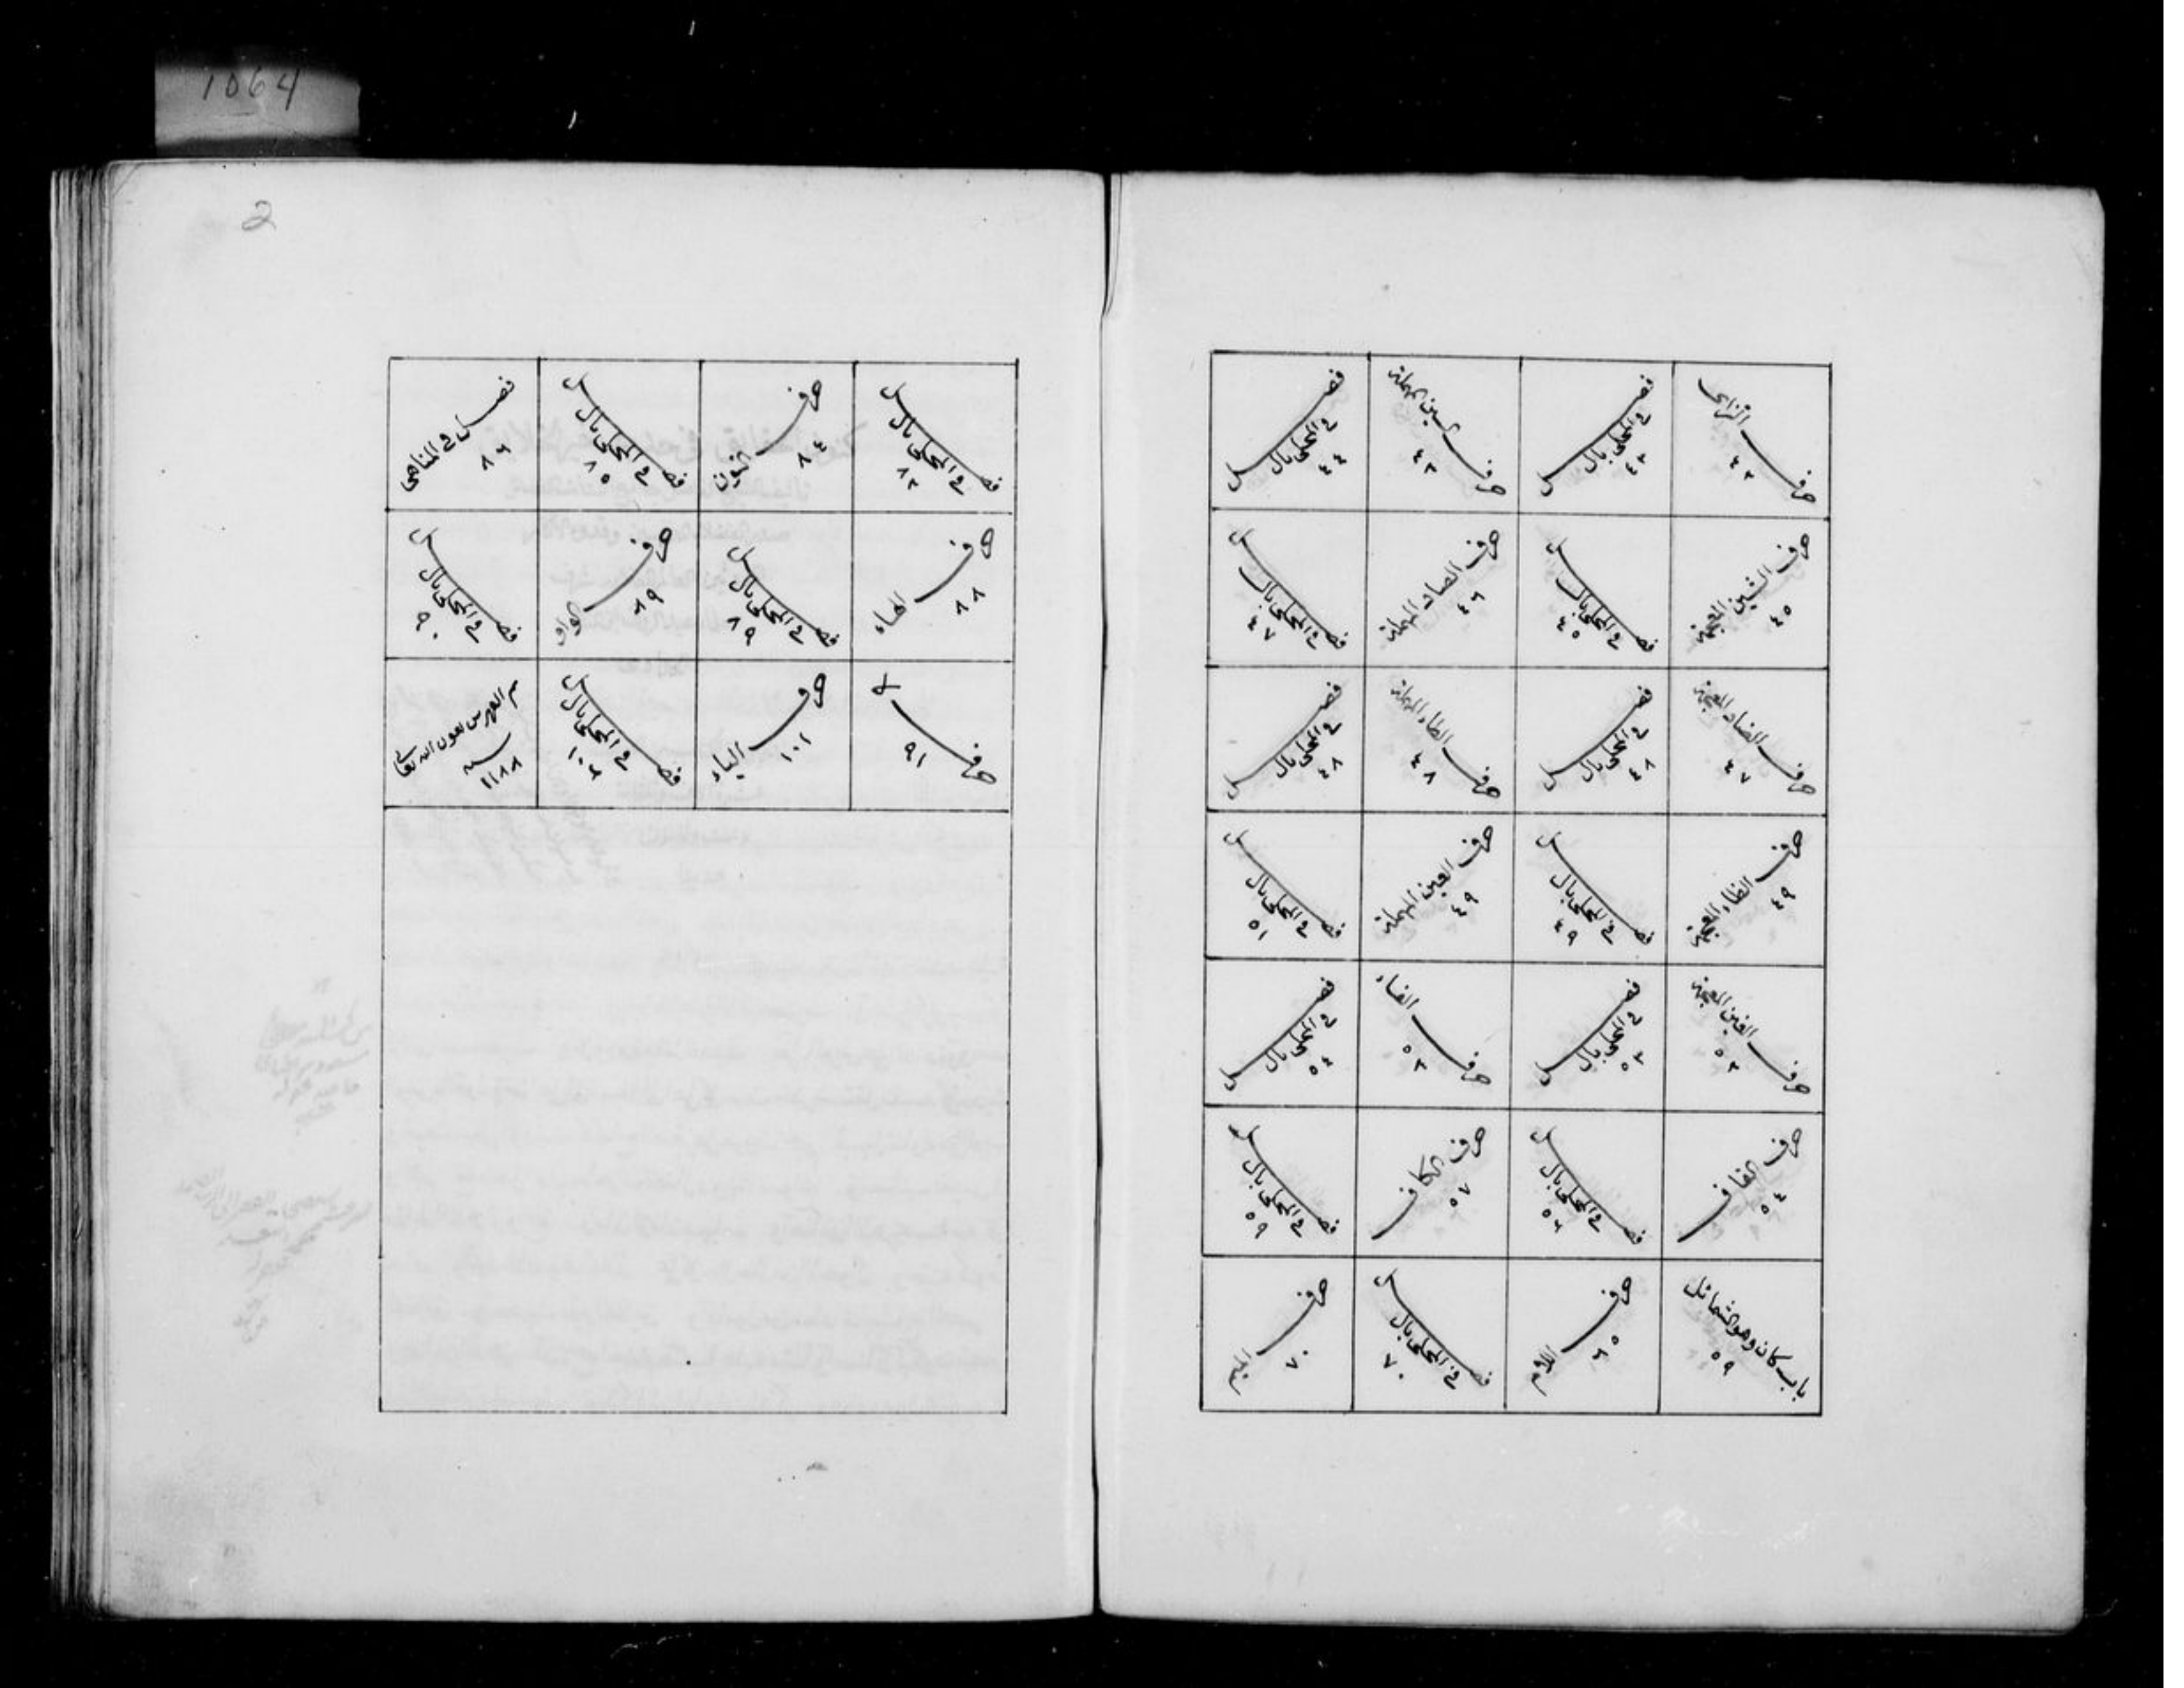 1064
حرف الزاى ٤٢
فصل في المحلى بال ٤٣
حرف السين المهملة ٤٣
فصل في المحلى بال ٤٤
حرف الشين المعجمة ٤٥
فصل في المحلى بال ٤٥
حرف الصاد المهملة ٤٦
فصل في المحلى بال ٤٧
حرف الضاد المعجمة ٤٧
فصل في المحلى بال ٤٨
حرف الطاء المهملة ٤٨
فصل في المحلى بال ٤٨
حرف الظاء المعجمة ٤٩
فصل في المحلى بال ٤٩
حرف العين المهملة ٤٩
فصل في المحلى بال ٥١
حرف الغين المعجمة ٥٢
فصل في المحلى بال ٥٣
حرف الفاء ٥٣
فصل في المحلى بال ٥٤
حرف القاف ٥٤
فصل في المحلى بال ٥٦
حرف الكاف ٥٧
فصل في المحلى بال ٥٩
باب كان وهو الشمائل ٥٩
حرف اللام
فصل في المحلى بال ٧٠
حرف الميم ٧٠
2
فصل في المحلى بال ٨٢
حرف النون ٨٤
فصل في المحلى بال ٨٥
فصل في المناهى ٨٦
حرف الهاء ٨٨
فصل في المحلى بال ٨٩
حرف الواو ٨٩
فصل في المحلى بال ٩٠
حرف لا ٩١
حرف الياء ١٠١
فصل في المحلى بال ١٠٢
تم الفهرس بعون الله تعالى
سنه ١١٨٨